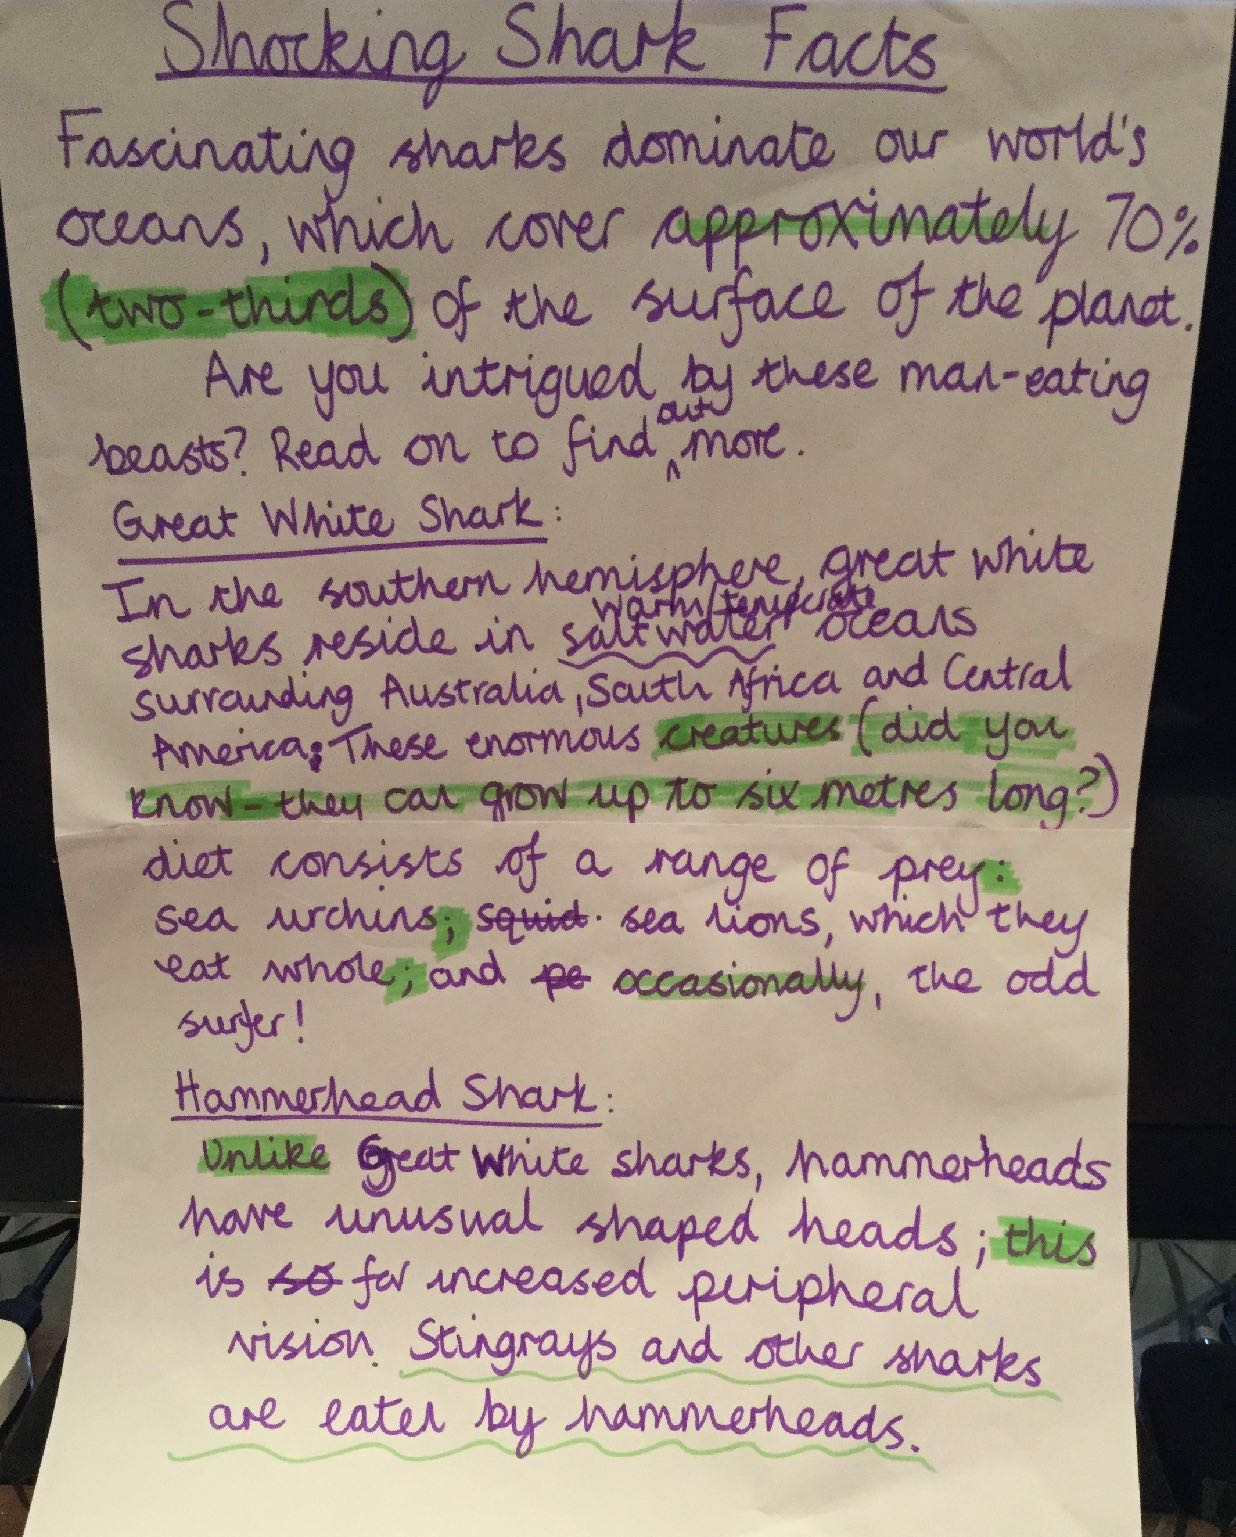 Shocking Shark Facts
Fascinating sharks dominate our world's
oceans, which cover approximately 70%
(two-thirds) of the surface of the planet.
Are you intrigued by these man-eating
out
beasts? Read on to find ^ more.
Great White Shark:
In the southern hemisphere, great white
warm/temperate
sharks reside in saltwater oceans
surrounding Australia, South Africa and Central
America; These enormous creatures (did you
know - they can grow up to six metres long?)
diet consists of a range of prey:
sea urchins; squid. sea lions, which they
eat whole; and pe occasionally, the odd
surfer!
Hammerhead Shark:
Unlike Great White sharks, hammerheads
have unusual shaped heads; this
is so for increased peripheral
vision. Stingrays and other sharks
are eaten by hammerheads.